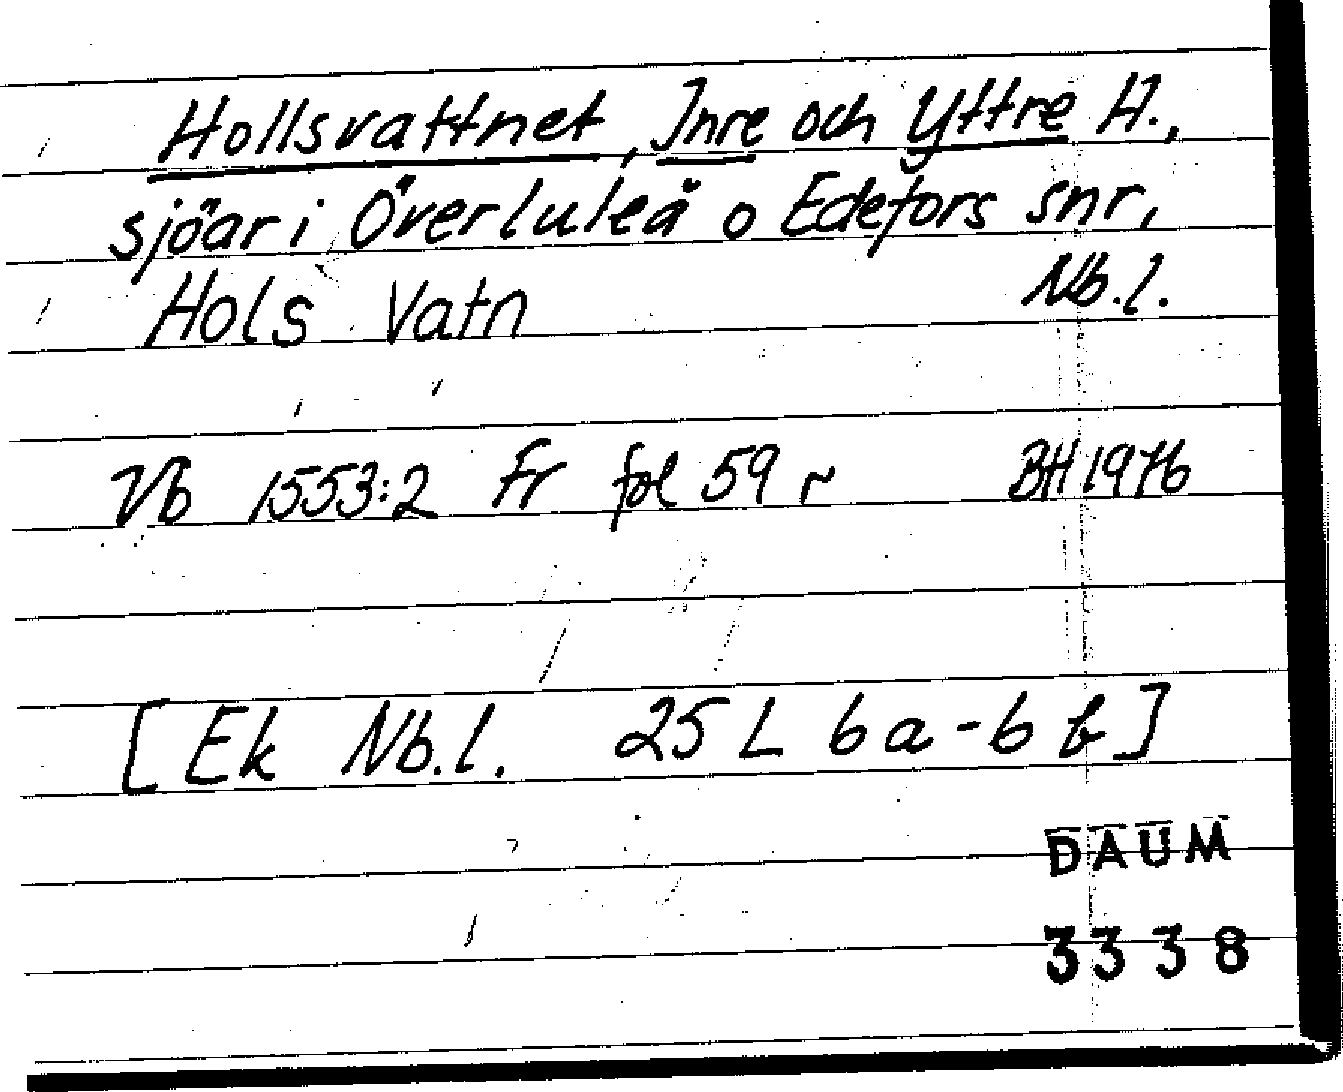 Hollsvattnet, Inre och Yttre H.,
sjöar i Överluleå o Edefors snr,
Hols Vatn Nb.l.
Vb 1553:2 Fr fol 59 r BH 1976
[Ek Nb.l. 25 L 6 a - 6 b]
DAUM
3338